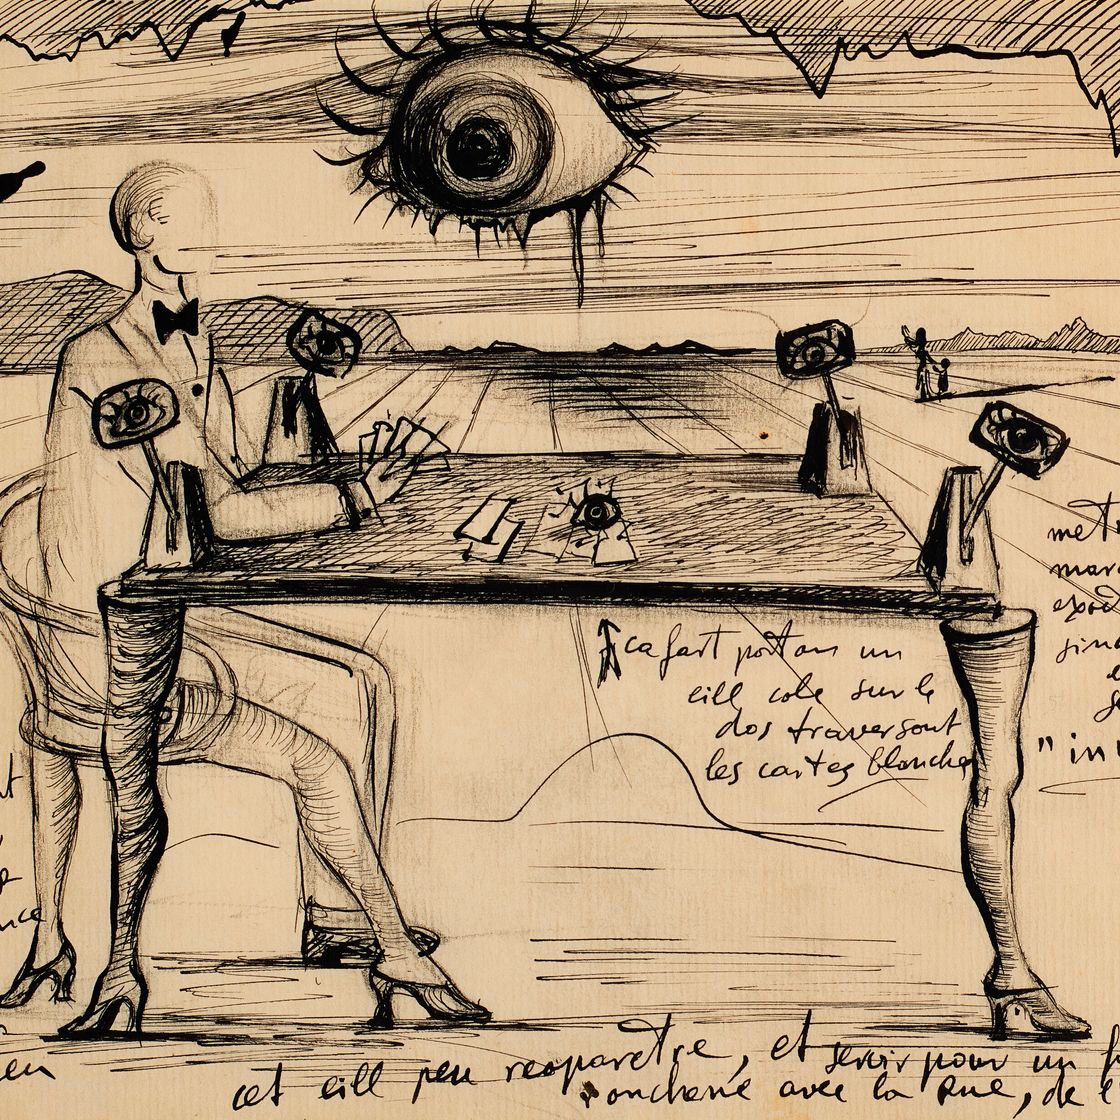 ca fait portan un
eill cole sur le
dos traversont
les cartes blanche
mett
mar
expo
sino
"in
nce
en
cet eill peu reaparetre, et servir pour un f
avec la Rue, de l